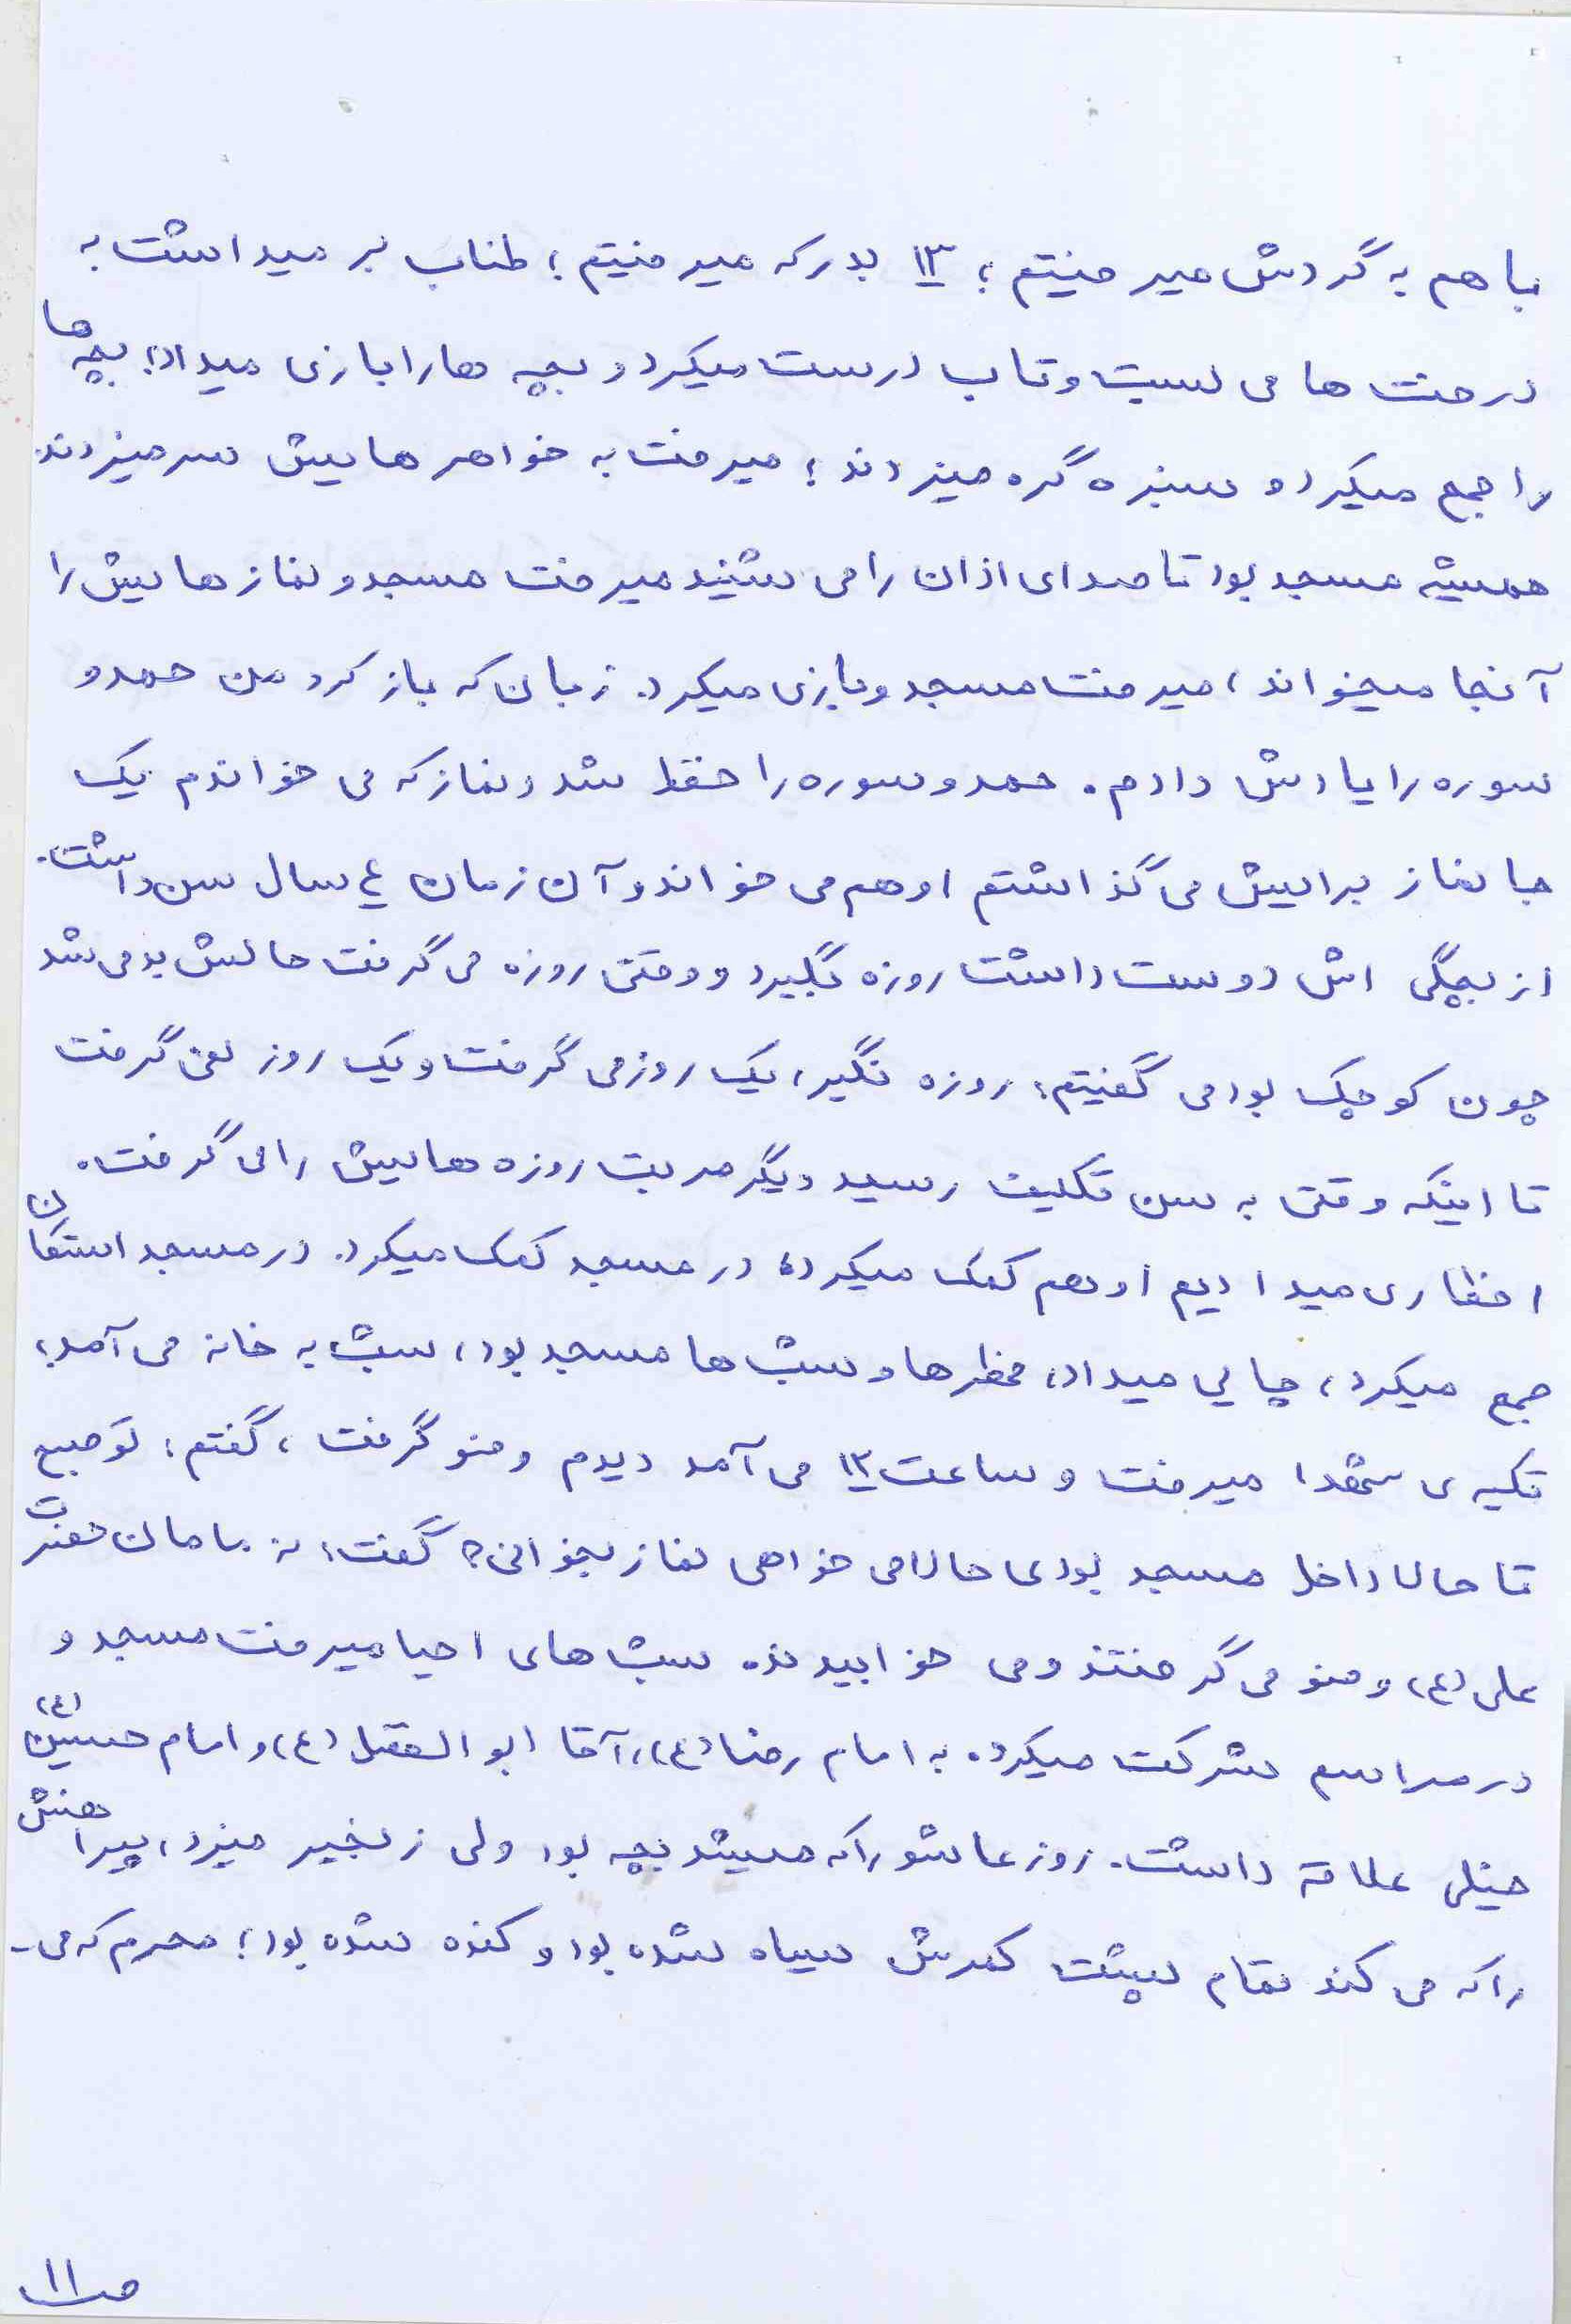 با هم به گردش میرفتیم؛ ۱۳ بدر که میرفتیم؛ طناب بر میداشت به
درخت ها می بست و تاب درست میکرد و بچه ها را بازی میداد؛ بچه ها
را جمع میکرد و سبزه گره میزدند؛ میرفت به خواهرهایش سر میزدند.
همیشه مسجد بود تا صدای اذان را می شنید میرفت مسجد و نمازهایش را
آنجا میخواند، میرفت مسجد و بازی میکرد. زبان که باز کرد من حمد و
سوره را یادش دادم. حمد و سوره را حفظ شد و نماز که می خواندم یک
جا نماز برایش می گذاشتم او هم می خواند و آن زمان ٤ سال سن داشت.
از بچگی اش دوست داشت روزه بگیرد و وقتی روزه می گرفت حالش بد می شد
چون کوچک بود می گفتیم: روزه نگیر، یک روز می گرفت و یک روز نمی گرفت
تا اینکه وقتی به سن تکلیف رسید دیگر مرتب روزه هایش را می گرفت.
افطاری میدادیم او هم کمک میکرد، در مسجد کمک میکرد. در مسجد استکان
جمع میکرد، چایی میداد، ها و شب ها مسجد بود، شب به خانه می آمد،
تکیه ی شهدا میرفت و ساعت ۱۲ می آمد دیدم وضو گرفت، گفتم: تو صبح
تا حالا داخل مسجد بودی حالا می خواهی نماز بخوانی؟ گفت: نه مامان حضرت
علی (ع) وضو می گرفتند و می خوابیدند. شب های احیا میرفت مسجد و
در مراسم شرکت میکرد. به امام رضا (ع)، آقا ابوالفضل (ع) و امام حسین (ع)
خیلی علاقه داشت. روز عاشورا که میشد بچه بود ولی زنجیر میزد، پیراهنش
را که می کند تمام پشت کمرش سیاه شده بود و کنده شده بود؛ محرم که می-
ص۱۱